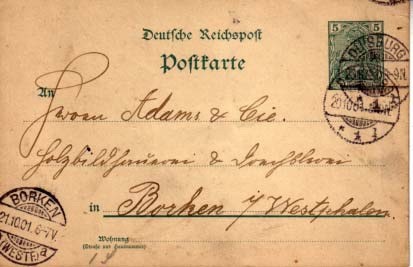 Deutsche Reichspost
Postkarte
5 5
DUISBURG
20.10.01
An
Herren Adams & Cie.
Holzbildhauerei & Drechslerei
in Borken i/Westphalen.
BORKEN
21.10.01. 6-7V.
(WESTF.) a
Wohnung
(Straße und Hausnummer)